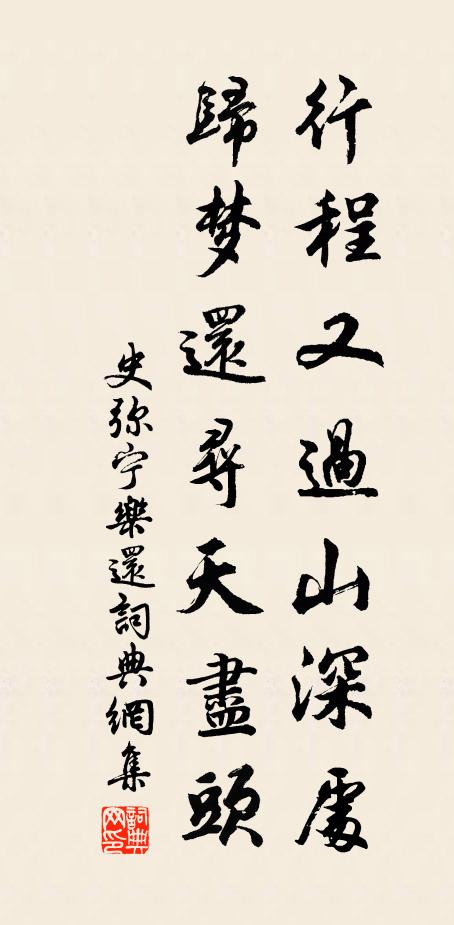 行程又過山深處
歸梦還尋天盡頭
史弥宁樂還詞典網集
詞典网印